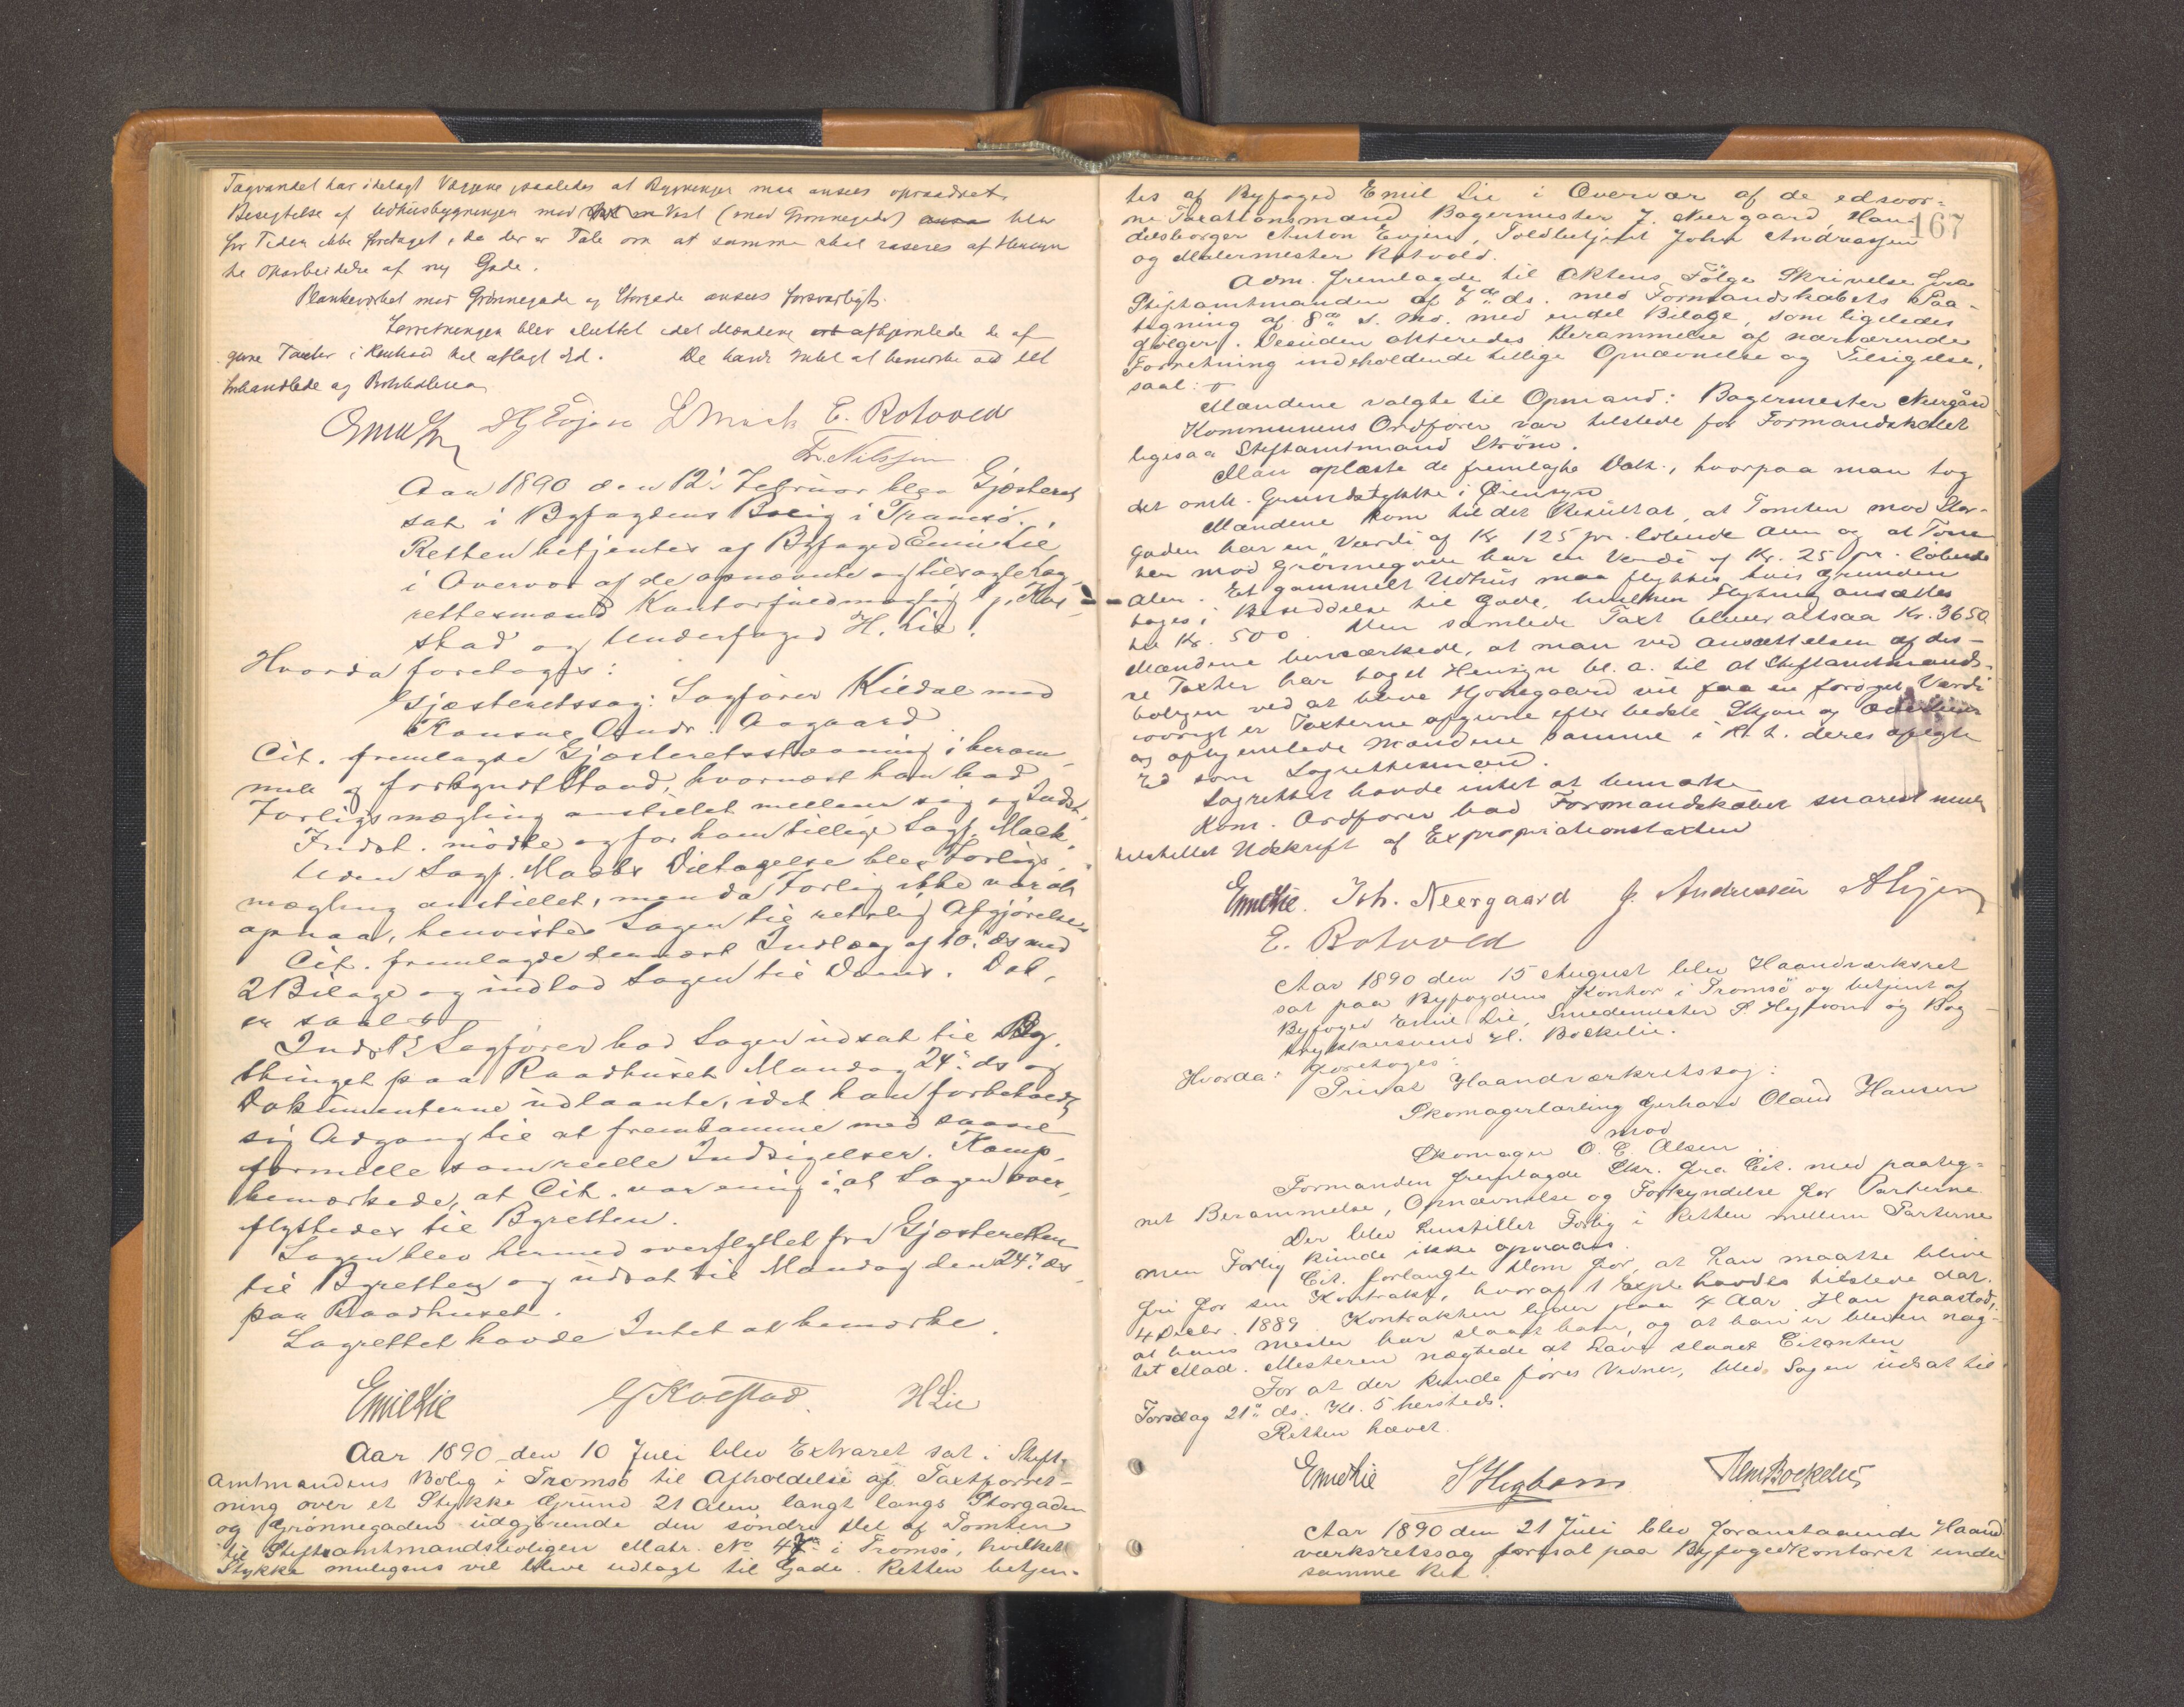 Tagvandet har idelagt Væggene saaledes at Bygningen maa ansees opraadnet
Besigtelse af Udhusbygningen mod Vest (mod Grønnegaden) blev
for Tiden ikke foretaget, da der er Tale om at samme skal raseres af Hensyn
til Oparbeidelse af ny Gade.
Plankeværket mod Grønnegade og Storgade ansees forsvarligt.
Forretningen blev sluttet idet Mændene afhjemlede de af
givne Taxter i Henhold til aflagt Ed. De havde Intet at bemærke ved det
behandlede og Protokollerea
Emil Lie HJ Evjen L Mack E. Rotvold
Fr. Nilssen
Aar 1890 den 12' Februar blev Gjæsteret
sat i Byfogdens Bolig i Tromsø.
Retten betjentes af Byfoged Emil Lie
i Overvær af de opnævnte og tilsagte Lag-
rettesmænd Kontorfuldmægtig J. Kol-
stad og Underfoged H. Lie.
Hvorda foretoges:
Gjæsteretssag: Sagfører Kildal mod
Konsul Andr. Aagaard
Cit. fremlagde Gjæsteretsstævning i beram-
met og forkyndt Stand, hvornæst han bad
Forligsmægling anstillet mellem sig og Indst.
Indst. mødte og for ham tillige Sagf. Mack.
Uden Sagf. Macks Deltagelse blev Forligs-
mægling anstillet, men da Forlig ikke var at
opnaa, henvistes Sagen til retslig Afgjørelse
Cit. fremlagde dernæst Indlæg af 10' ds med
2 Bilage og indlod Sagen til Doms. Dok.
er saal.
Indst.s Sagfører bad Sagen udsat til By-
thinget paa Raadhuset Mandag 24' ds og
Dokumenterne udlaante, idet han forbeholdt
sig Adgang til at fremkomme med saavel
formelle som reelle Indsigelser. Komp.
bemærkede, at Cit. var enig i, at Sagen over-
flyttedes til Byretten.
Sagen blev hermed overflyttet fra Gjæsteretten
til Byretten og udsat til Mandag den 24' ds
paa Raadhuset.
Lagrettet havde Intet at bemærke.
Emil Lie J Kolstad. H Lie
Aar 1890 den 10 Juli blev Extraret sat i Stift-
amtmandens Bolig i Tromsø til Afholdelse af Taxtforret-
ning over et Stykke Grund 21 Alen langt langs Storgaden
og Grønnegaden udgjørende den søndre Del af Tomten
til Stiftsamtmandsboligen Matr. No 47 i Tromsø, hvilket
Stykke muligens vil blive udlagt til Gade. Retten betjen-
167
tes af Byfoged Emil Lie i Overvær af de edsvor-
ne Taxationsmænd Bagermester J. Neergaard, Han-
delsborger Anton Evjen, Toldbetjent John Andreassen
og Malermester Rotvold.
Adm. fremlagde til Aktens Følge Skrivelse fra
Stiftamtmanden af ds. med Formandskabets Paa-
tegning af 8de s. Md. med endel Bilage, som ligeledes
følger. Desuden akteredes Berammelse af nærværende
Forretning indeholdende tillige Opnævnelse og Tilsigelse,
saal:
Mændene valgte til Opmand: Bagermester Neergård
Kommunens Ordfører var tilstede for Formandskabet
ligesaa Stiftamtmand Strøm.
Man oplæste de fremlagte Dok., hvorpaa man tog
det omh. Grundstykke i Øiensyn
Mændene kom til det Resultat, at Tomten mod Stor-
gaden har en Værdi af Kr. 125 pr. løbende Alen og at Tom-
ten mod Grønnegaden har en Værdi af Kr. 25 pr. løbende
Alen. Et gammelt Udhus maa flyttes hvis Grunden
tages i Besiddelse til Gade, hvilken Flytning ansættes
til Kr. 500. Den samlede Taxt bliver altsaa Kr. 3650
Mændene bemærkede, at man ved Ansættelsen af dis-
se Taxter har taget Hensyn bl. a. til at Stiftamtmands-
boligen ved at blive Hjørnegaard vil faa en forøget Værdi
iøvrigt er Taxterne afgivne efter bedste Skjøn og
og afhjemlede Mændene samme i K. t. deres aflagte
Ed som Lagrettesmænd.
Lagrettet havde intet at bemærke
Kom. Ordfører bad Formandskabet snarest mul.
tilstillet Udskrift af Expropriationstaxten
Emil Lie. Joh. Neergaard J. Andreassen A Evjen
E. Rotvold
Aar 1890 den 15 August blev Haandværksret
sat paa Byfogdens Kontor i Tromsø og betjent af
Byfoged Emil Lie, Smedemester S. Hegbom og Bog
trykkersvend H. Bockelie.
Hvorda: foretoges:
Privat Haandværkretssag:
Skomagerlærling Gerhard Olaus Hansen
mod
Skomager O. E. Olsen.
Formanden fremlagde Skr. fra Cit. med paateg-
net Berammelse, Opnævnelse og Forkyndelse for Parterne
Der blev henstillet Forlig i Retten mellem Parterne
men Forlig kunde ikke opnaaes.
Cit. forlangte Dom for, at han maatte blive
fri for sin Kontrakt, hvoraf 1 Expl. havdes tilstede dat.
4 Decbr. 1889 Kontrakten lyder paa 4 Aar. Han paastod,
at hans Mester har slaaet ham, og at han er bleven næg-
tet Mad. Mesteren nægtede at have slaaet Citanten
For at der kunde føres Vidner, blev Sagen udsat til
Torsdag 21de ds. Kl. 5 hersteds.
Retten hævet.
Emil Lie S Hegbom Hem Bockelie
Aar 1890 den 21 Juli blev foranstaaende Haand
værksretssag fortsat paa Byfogedkontoret under
samme Ret